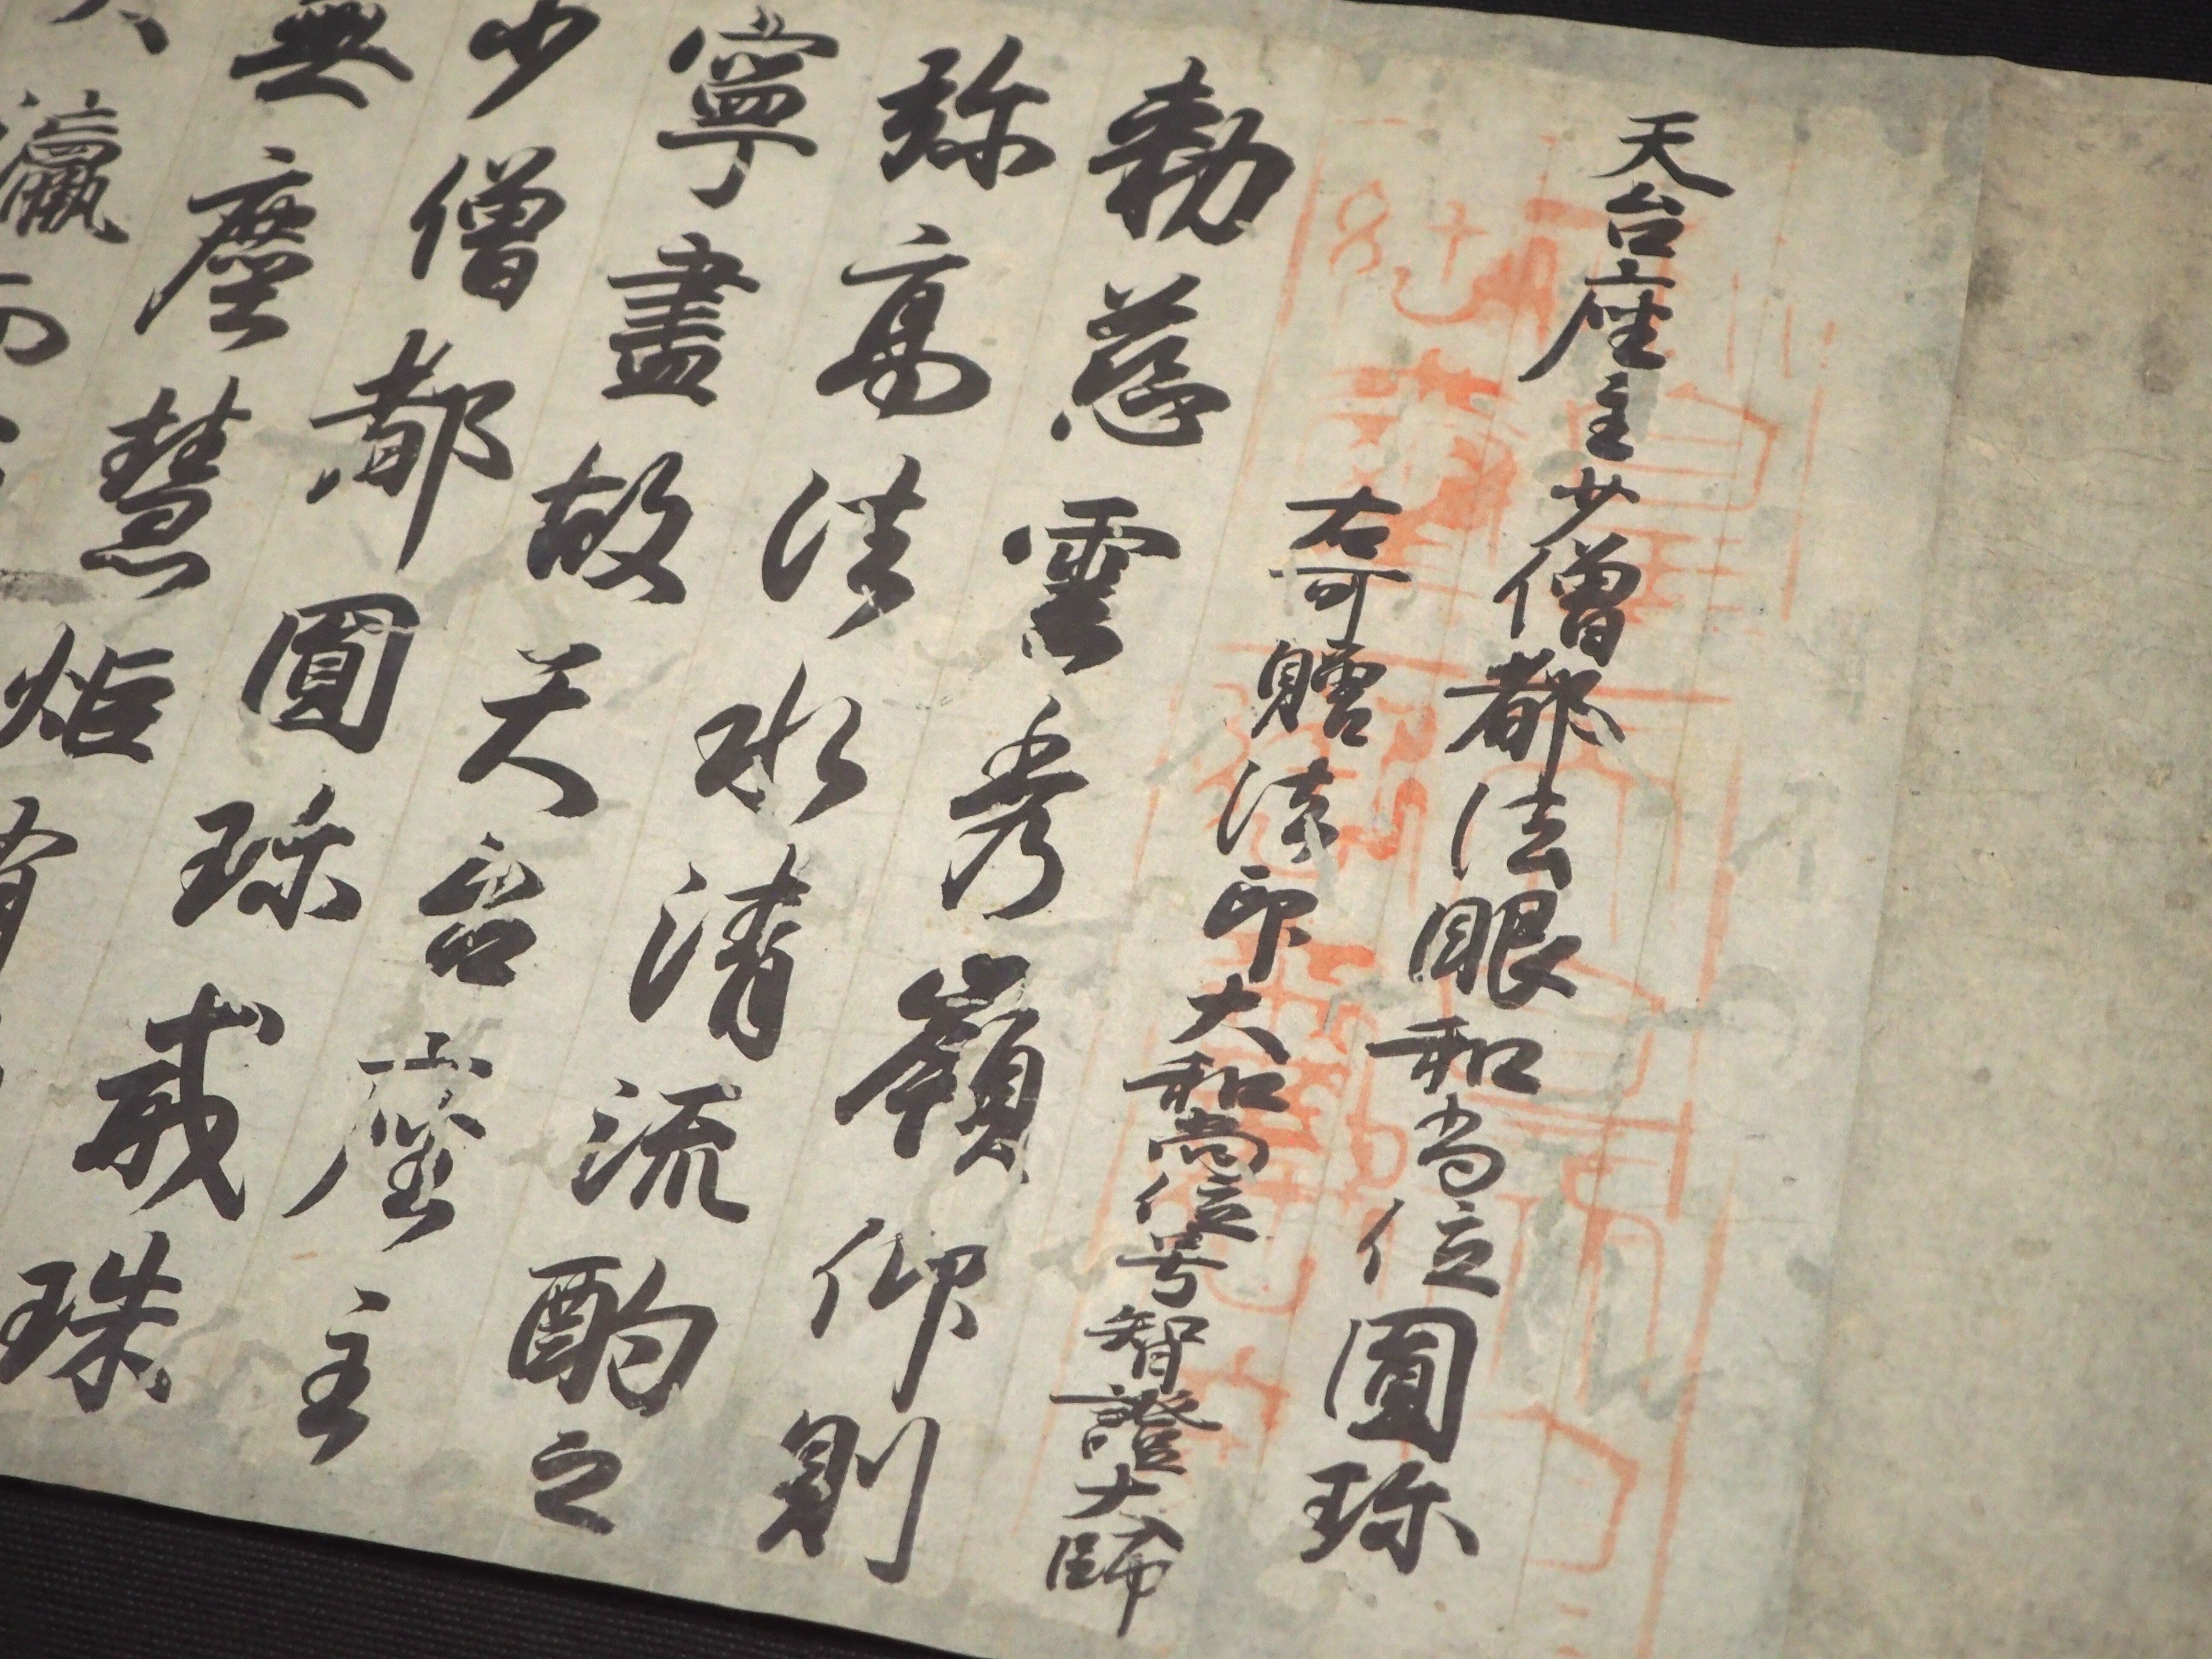 天台座主少僧都法眼和尚位圓珎
右可贈法印大和尚位号智證大師
勅慈雲秀嶺仰則
弥高法水清流酌之
寧盡故天台座主
少僧都圓珎戒珠
無塵慧炬有
瀛而